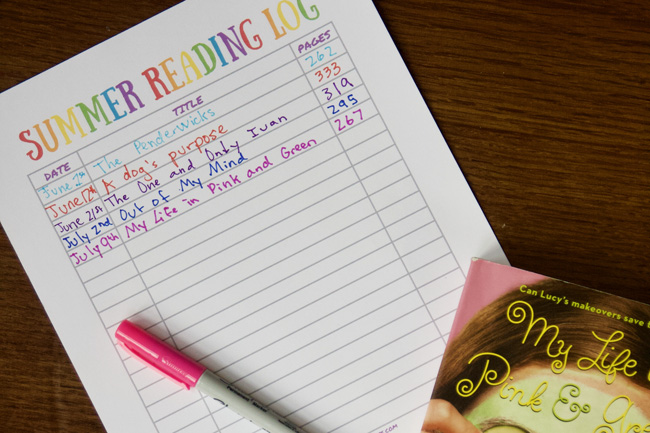 SUMMER READING LOG
DATE TITLE PAGES
The Penderwicks 262
June 12th A dog's purpose 333
June 21st The One and Only Ivan 319
July 2nd Out of My Mind 295
July 9th My Life in Pink and Green 267
Can Lucy's makeovers save
My Life
Pink &